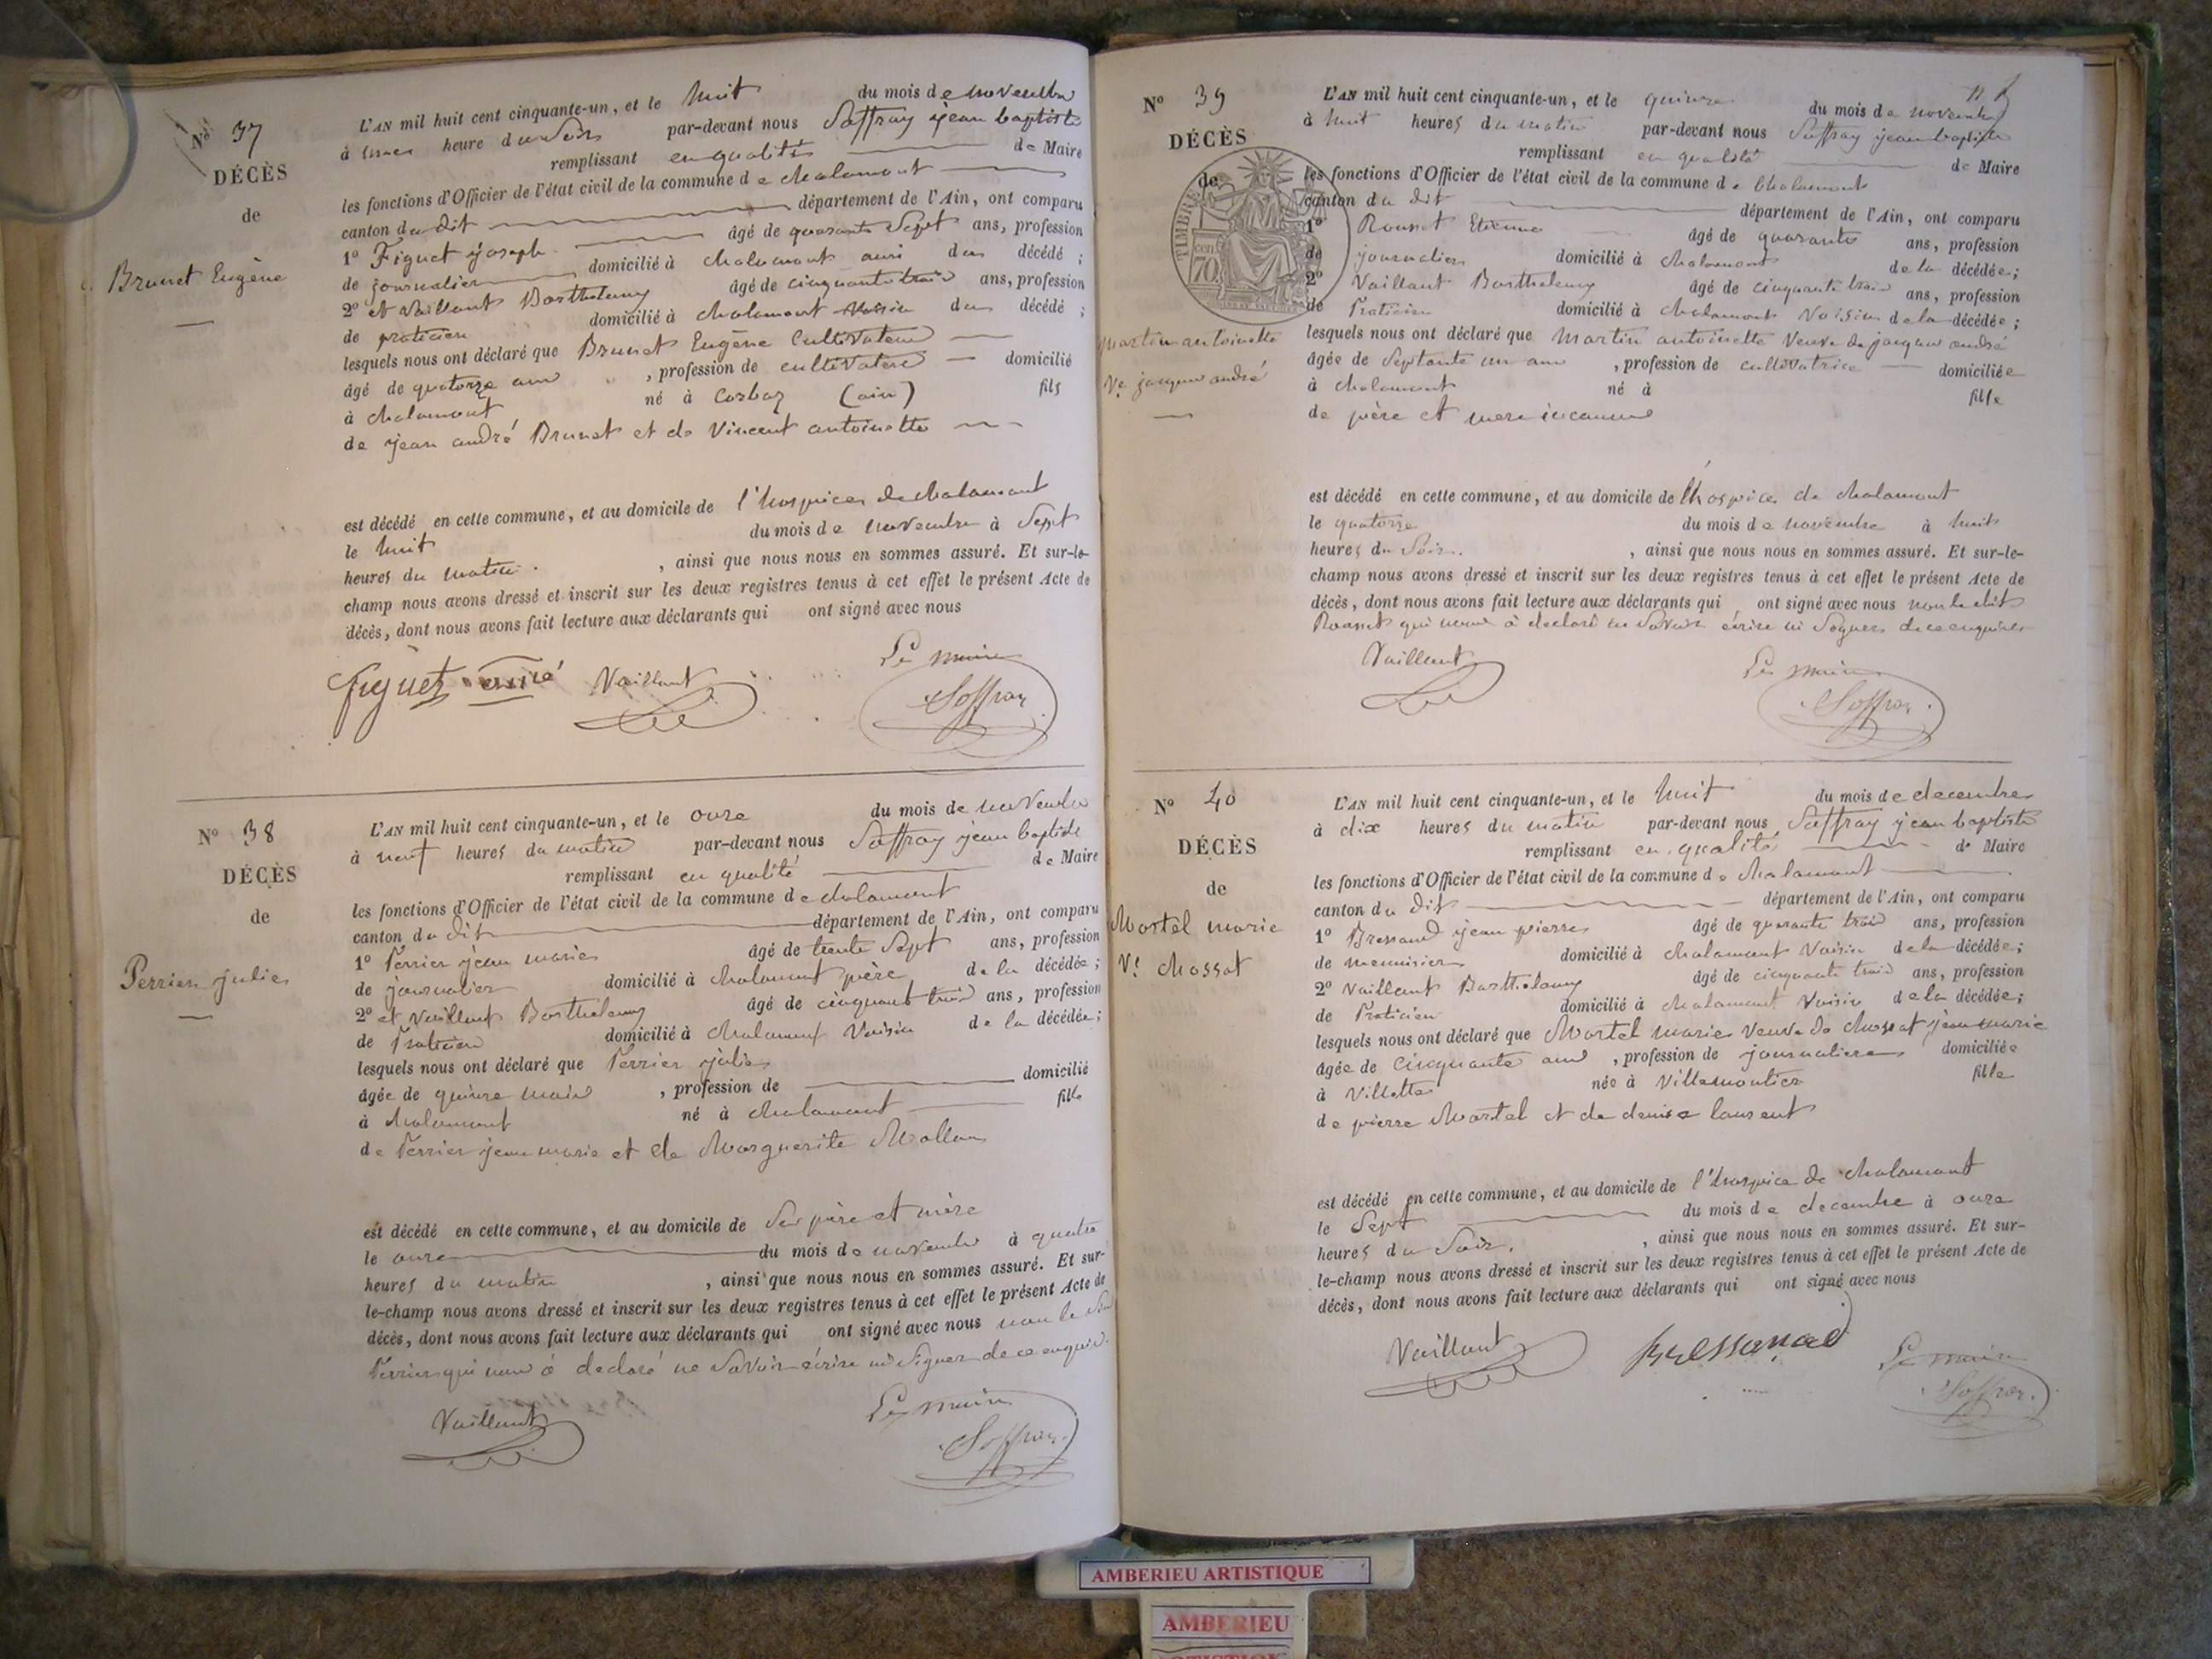 N° 37
DÉCÈS
de
Brunet Eugène
L'AN mil huit cent cinquante-un, et le huit du mois de novembre
à une heure du soir par-devant nous Saffray jean baptiste
remplissant en qualité de Maire
les fonctions d'Officier de l'état civil de la commune de chalamont
canton du dit département de l'Ain, ont comparu
1° Figuet joseph âgé de quarante sept ans, profession
de journalier domicilié à chalamont ami du décédé ;
2° et Vaillant Barthelemy âgé de cinquante trois ans, profession
de praticien domicilié à chalamont voisin du décédé ;
lesquels nous ont déclaré que Brunet Eugène Cultivateur
âgé de quatorze ans , profession de cultivateur domicilié
à chalamont né à (ain) fils
de jean andré Brunet et de Vincent antoinette
est décédé en cette commune, et au domicile de l'hospice de chalamont
le huit du mois de novembre à Sept
heures du matin. , ainsi que nous nous en sommes assuré. Et sur-le-
champ nous avons dressé et inscrit sur les deux registres tenus à cet effet le présent Acte de
décès, dont nous avons fait lecture aux déclarants qui ont signé avec nous
figuet Vaillant Le maire
Saffray
N° 38
DÉCÈS
de
Perrier julie
L'AN mil huit cent cinquante-un, et le onze du mois de novembre
à neuf heures du matin par-devant nous Saffray jean baptiste
remplissant en qualité de Maire
les fonctions d'Officier de l'état civil de la commune de chalamont
canton du dit département de l'Ain, ont comparu
1° Perrier jean marie âgé de trente Sept ans, profession
de journalier domicilié à chalamont père de la décédée ;
2° et Vaillant Barthelemy âgé de cinquante trois ans, profession
de Praticien domicilié à chalamont Voisin de la décédée ;
lesquels nous ont déclaré que Perrier julie
âgée de quinze mois , profession de domicilié
à chalamont né à chalamont fille
de Perrier jean marie et de Marguerite
est décédé en cette commune, et au domicile de Ses père et mère
le onze du mois de novembre à quatre
heures du matin , ainsi que nous nous en sommes assuré. Et sur-
le-champ nous avons dressé et inscrit sur les deux registres tenus à cet effet le présent Acte de
décès, dont nous avons fait lecture aux déclarants qui ont signé avec nous non le
Perrier qui nous a declaré ne Savoir écrire ni Signer de ce enquis.
Vaillant Le maire
Saffray
N° 39
DÉCÈS
de
TIMBRE
cen
70
martin antoinette
Ve jacques andré
L'AN mil huit cent cinquante-un, et le quinze du mois de novembre
à huit heures du matin par-devant nous Saffray jean baptiste
remplissant en qualité de Maire
les fonctions d'Officier de l'état civil de la commune de Chalamont
canton du dit département de l'Ain, ont comparu
1° Rousset Etienne âgé de quarante ans, profession
de journalier domicilié à chalamont de la décédée ;
2° Vaillant Barthelemy âgé de cinquante trois ans, profession
de Praticien domicilié à chalamont Voisins de la décédée ;
lesquels nous ont déclaré que martin antoinette Veuve de jacques andré
âgée de Septante un ans , profession de cultivatrice domiciliée
à chalamont né à fille
de père et mere inconnus
est décédé en cette commune, et au domicile de l'hospice de chalamont
le quatorze du mois de novembre à huit
heures du Soir. , ainsi que nous nous en sommes assuré. Et sur-le-
champ nous avons dressé et inscrit sur les deux registres tenus à cet effet le présent Acte de
décès, dont nous avons fait lecture aux déclarants qui ont signé avec nous non le dit
Rousset qui nous à declaré ne Savoir écrire ni Signer de ce enquis
Vaillant Le maire
Saffray
N° 40
DÉCÈS
de
Mortel marie
Ve chossat
L'AN mil huit cent cinquante-un, et le huit du mois de decembre
à dix heures du matin par-devant nous Saffray jean baptiste
remplissant en qualité de Maire
les fonctions d'Officier de l'état civil de la commune de chalamont
canton du dit département de l'Ain, ont comparu
1° Bressand jean pierre âgé de quarante trois ans, profession
de menuisier domicilié à chalamont Voisin de la décédée ;
2° Vaillant Barthelemy âgé de cinquante trois ans, profession
de Praticien domicilié à chalamont Voisin de la décédée ;
lesquels nous ont déclaré que Mortel marie veuve de chossat jean marie
âgée de cinquante ans , profession de journaliere domiciliée
à Villette née à Villemontier fille
de pierre Mortel et de denise laurent
est décédé en cette commune, et au domicile de l'hospice de chalamont
le Sept du mois de decembre à onze
heures du Soir. , ainsi que nous nous en sommes assuré. Et sur-
le-champ nous avons dressé et inscrit sur les deux registres tenus à cet effet le présent Acte de
décès, dont nous avons fait lecture aux déclarants qui ont signé avec nous
Vaillant Bressand Le maire
Saffray
AMBERIEU ARTISTIQUE
AMBERIEU
ARTISTIQUE